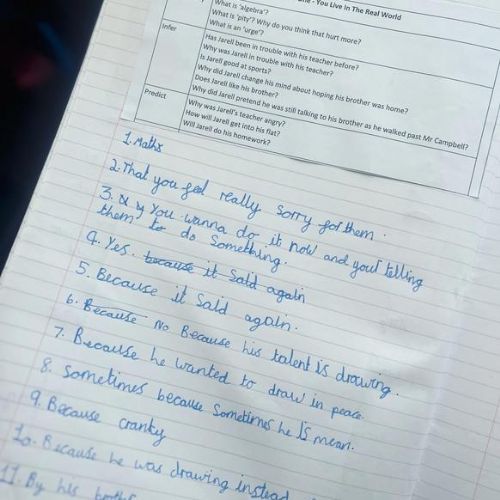 - You Live In The Real World
What is 'algebra'?
What is 'pity'? Why do you think that hurt more?
What is an 'urge'?
Infer
Has Jarell been in trouble with his teacher before?
Why was Jarell in trouble with his teacher?
Is Jarell good at sports?
Why did Jarell change his mind about hoping his brother was home?
Does Jarell like his brother?
Why did Jarell pretend he was still talking to his brother as he walked past Mr Campbell?
Predict
Why was Jarell's teacher angry?
How will Jarell get into his flat?
Will Jarell do his homework?
1. Maths
2. That you feel really sorry for them.
3. You wanna do it now and your telling
them to do something.
4. Yes. because it said again
5. Because it said again.
6. Because No Because his talent is drawing.
7. Because he wanted to draw in peace.
8. Sometimes because sometimes he is mean.
9. Because cranky
10. Because he was drawing instead
11. By his